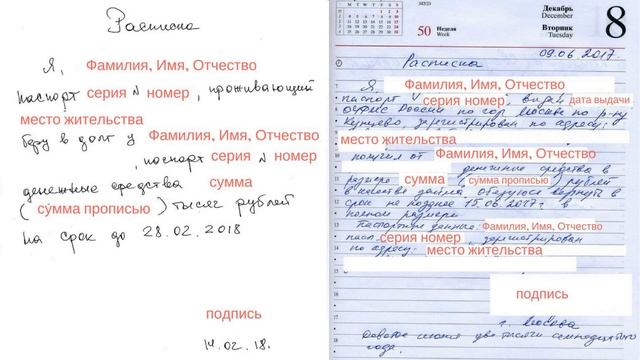 Расписка
Я, Фамилия, Имя, Отчество
паспорт серия № номер, проживающий
место жительства
беру в долг у Фамилия, Имя, Отчество
, паспорт серия № номер
денежные средства сумма
( сумма прописью ) тысяч рублей
на срок до 28.02.2018
подпись
14.02.18.
343/23
Декабрь
December
50 Неделя
Week
Вторник
Tuesday
8
09.06.2017.
Расписка
Я, Фамилия, Имя, Отчество
паспорт серия номер, выдан дата выдачи
России по гор. Москве по р-ну
Кунцево, зарегистрирован по адресу:
место жительства
получил от Фамилия, Имя, Отчество
денежные средства в
размере сумма ( сумма прописью ) рублей
в качестве займа обязуюсь вернуть в
срок не позднее 15.06.2017 г. в
полном размере.
Паспортные данные: Фамилия, Имя, Отчество
пасп. серия номер, зарегистрирован
по адресу: место жительства
подпись
г. Москва
июня две тысячи семнадцатого
года.